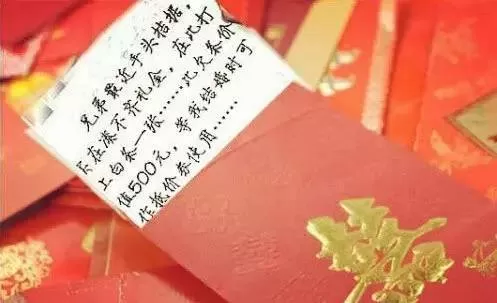 兄弟最近手头拮据，
在凑不齐礼金，在此打
上白条一张……此欠条价
值500元，等我结婚时可
作抵价券使用……